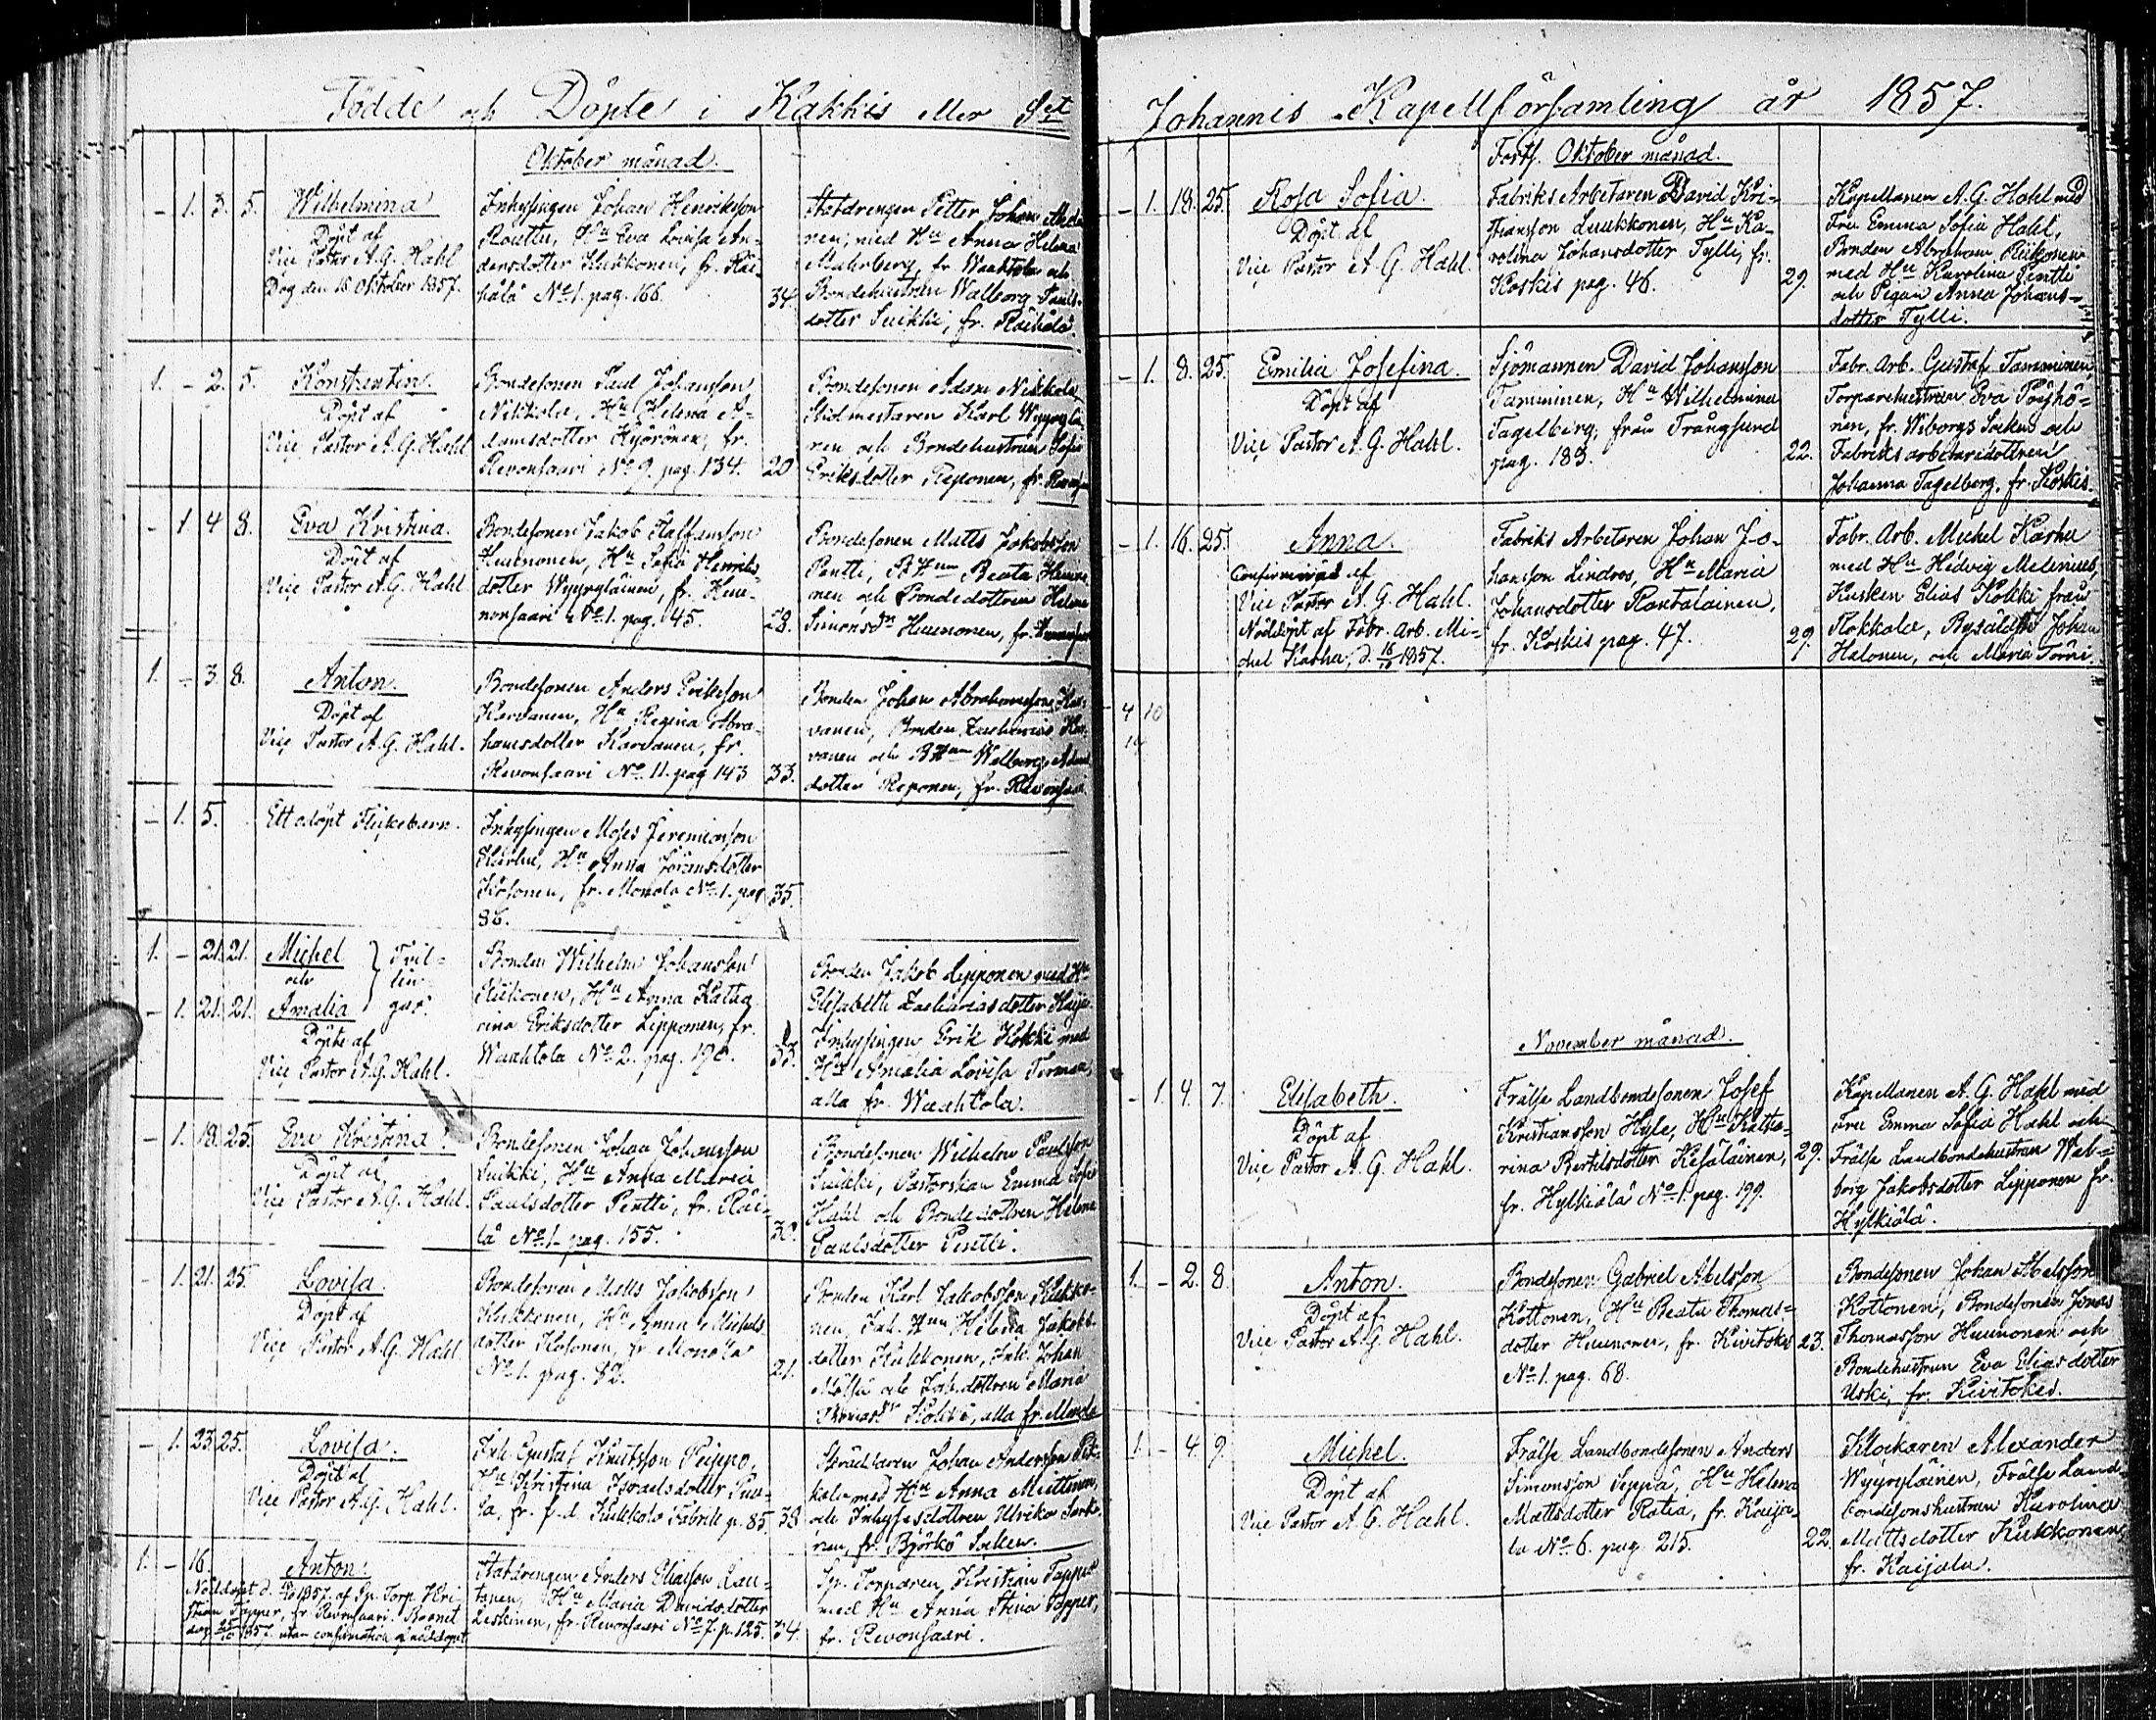 Födde och Döpte i Kakkis eller S:t
Oktober månad.
- 1. 3. 5. Wilhelmina
Döpt af
Vice Pastor A. G. Hahl
Dog den 15 Oktober 1857.
Inhysingen Johan Henriksson
Routtu, Hu Eva Lovisa An-
dersdotter Kukkonen, fr. Räi-
hälä No 1. pag. 166.
34.
Statdrengen Petter Johan
nen, med Hu Anna Helena
Malmberg, fr. Waahtola och
Bondehustrun Walborg Pauls-
dotter Suikki, fr. Räihälä.
1. - 2. 5. Konstantin.
Döpt af
Vice Pastor A. G. Hahl
Bondesonen Paul Johansson
Nikkola, Hu Helena A-
damsdotter Hyörönen, fr.
Revonsaari No 9. pag. 134.
20
Bondesonen Adam Nikkola
Skidmestaren Karl Wyyryläi-
nen och Bondehustrun Sofia
Eriksdotter Reponen, fr.
- 1 4 8. Eva Kristina.
Döpt af
Vice Pastor A. G. Hahl
Bondesonen Jakob Staffansson
Huunonen, Hu Sofia Henriks-
dotter Wyyryläinen, fr. Huu-
nonsaari No 1. pag. 45.
28.
Bondesonen Matts Jakobsson
Pentti, B Hun Beata Huuno-
nen och Bondedottren Helena
Simonsdr Huunonen, fr.
1. - 3. 8. Anton.
Döpt af
Vice Pastor A. G. Hahl.
Bondesonen Anders Eriksson
Karvanen, Hu Regina Abra-
hamsdotter Karvanen, fr.
Revonsaari No 11. pag 143
33.
Bonden Johan Abrahamsson Kar-
vanen, Bonden Zacharias Kar-
vanen och B Hun Walborg
dotter Reponen, fr. Revonsaari
- 1. 5. Ett odöpt Flickebarn.
Inhysingen Moses Jeremiasson
Karhu, Hu Anna Göransdotter
Kosonen, fr. Monola No 1. pag
86.
35.
1. - 21. 21. Michel } Tvil-
och lin-
- 1. 21. 21. Amalia gar.
Döpte af
Vice Pastor A. G. Hahl.
Bonden Wilhelm Johansson
Kukonen, Hu Anna Katha
rina Eriksdotter Lipponen, fr.
Waahtola No 2. pag. 190.
33.
Bonden Jakob Lipponen med Hu
Elisabeth Zachariasdotter
Inhysingen Erik Kokki med
Hu Amalia Lovisa
alla fr. Waahtola.
- 1. 18. 25. Eva Kristina.
Döpt af
Vice Pastor A. G. Hahl.
Bondesonen Johan Johansson
Suikki, Hu Anna Maria
Paulsdotter Pentti, fr. Räi-
lä No 1. pag. 155.
30.
Bondesonen Wilhelm Paulsson
Suikki, Pastorskan Emma Sofia
Hahl och Bondedottren Helena
Paulsdotter Pentti.
- 1. 21. 25. Lovisa.
Döpt af
Vice Pastor A. G. Hahl
Bondesonen Matts Jakobsson
Kukkonen, Hu Anna Michels
dotter Kosonen, fr Monola
No 1. pag. 82.
21.
Bonden Karl Jakobsson Kukko-
nen, Inh. Hun Helena Jakobs-
dotter Kukkonen, Inh. Johan
och Inh.dottren Maria
Thomasdr alla fr. Monola
- 1. 23. 25. Lovisa.
Döpt af
Vice Pastor A. G. Hahl.
Inh. Gustaf Knutsson Peippo,
Hu Kristina Israelsdotter
la, fr. f.d. Kukkola Fabrik p. 85.
38
Skräddaren Johan Andersson
med Hu Anna Miettinen
och Inhysesdottren Ulrika
nen, fr. Björkö Socken.
1. - 16. Anton.
Nöddöpt d. 1857. af Sp. Torp. Kri-
stian Tapper, fr. Revonsaari. Barnet
dog 1857. utan confirmation af nöddopet
Statdrengen Anders Eliasson Lau-
tanen, Hu Maria Davidsdotter
Leskinen, fr. Revonsaari No 7. p. 125.
34.
Sp. Torparen Kristian Tapper
med Hu Anna Stina Tapper,
fr. Revonsaari.
Johannis Kapellförsamling år 1857.
Forts. Oktober månad.
- 1. 18. 25. Rosa Sofia.
Döpt af
Vice Pastor A. G. Hahl.
Fabriks Arbetaren David Kri-
stiansson Luukkonen, Hu Ka-
rolina Johansdotter Tylli, fr.
Koskis pag. 46.
29.
Kapellanen A. G. Hahl med
Fru Emma Sofia Hahl,
Bonden Abraham Kukonen
med Hu Karolina Pentti
och Pigan Anna Johans-
dotter Tylli.
- 1. 8. 25. Emilia Josefina.
Döpt af
Vice Pastor A. G. Hahl.
Sjömannen David Johansson
Tamminen, Hu Wilhelmina
Fagelberg, från Trångsund
pag. 183.
22.
Fabr. Arb. Gustaf Tamminen,
Torparehustrun Eva Pöyhö-
nen, fr. Wiborgs Socken och
Fabriksarbetaredottren
Johanna Fagelberg, fr. Koskis.
- 1. 16. 25. Anna.
Confirmerad af
Vice Pastor A. G. Hahl.
Nöddöpt af Fabr. Arb. Mi-
chel Karhu, d. 16/10 1857.
Fabriks Arbetaren Johan Jo-
hansson Lindros, Hu Maria
Johansdotter Rantalainen,
fr. Koskis pag. 47.
29.
Fabr. Arb. Michel Karhu
med Hu Hedvig Melenius,
Kusken Elias Kokki från
Rokkala, Johan
Halonen, och Maria Törni.
4 10
14
November månad.
- 1. 4. 7. Elisabeth.
Döpt af
Vice Pastor A. G. Hahl.
Frälse Landbondesonen Josef
Kristiansson Hyle, Hu Katha-
rina Bertilsdotter Kesäläinen,
fr. Hylkiälä No 1. pag. 199.
29.
Kapellanen A. G. Hahl med
Fru Emma Sofia Hahl och
Frälse Landbondehustrun Wal-
borg Jakobsdotter Lipponen fr.
Hylkiälä.
1. - 2. 8. Anton.
Döpt af
Vice Pastor A. G. Hahl.
Bondesonen Gabriel Abelsson
Kottonen, Hu Beata Thomas-
dotter Huunonen, fr. Kivitokes
No 1. pag. 68.
23.
Bondesonen Johan Abelsson
Kottonen, Bondesonen Jonas
Thomasson Huunonen och
Bondehustrun Eva Eliasdotter
Uski, fr. Kivitokes.
1. - 4. 9. Michel.
Döpt af
Vice Pastor A. G. Hahl.
Frälse Landbondesonen Anders
Simonsson Seppä, Hu Helena
Mattsdotter Ratia, fr. Kaija-
la No 6. pag. 215.
22.
Klockaren Alexander
Wyyryläinen, Frälse Land-
bondesonshustrun Karolina
Mattsdotter Kukkonen
fr. Kaijala.